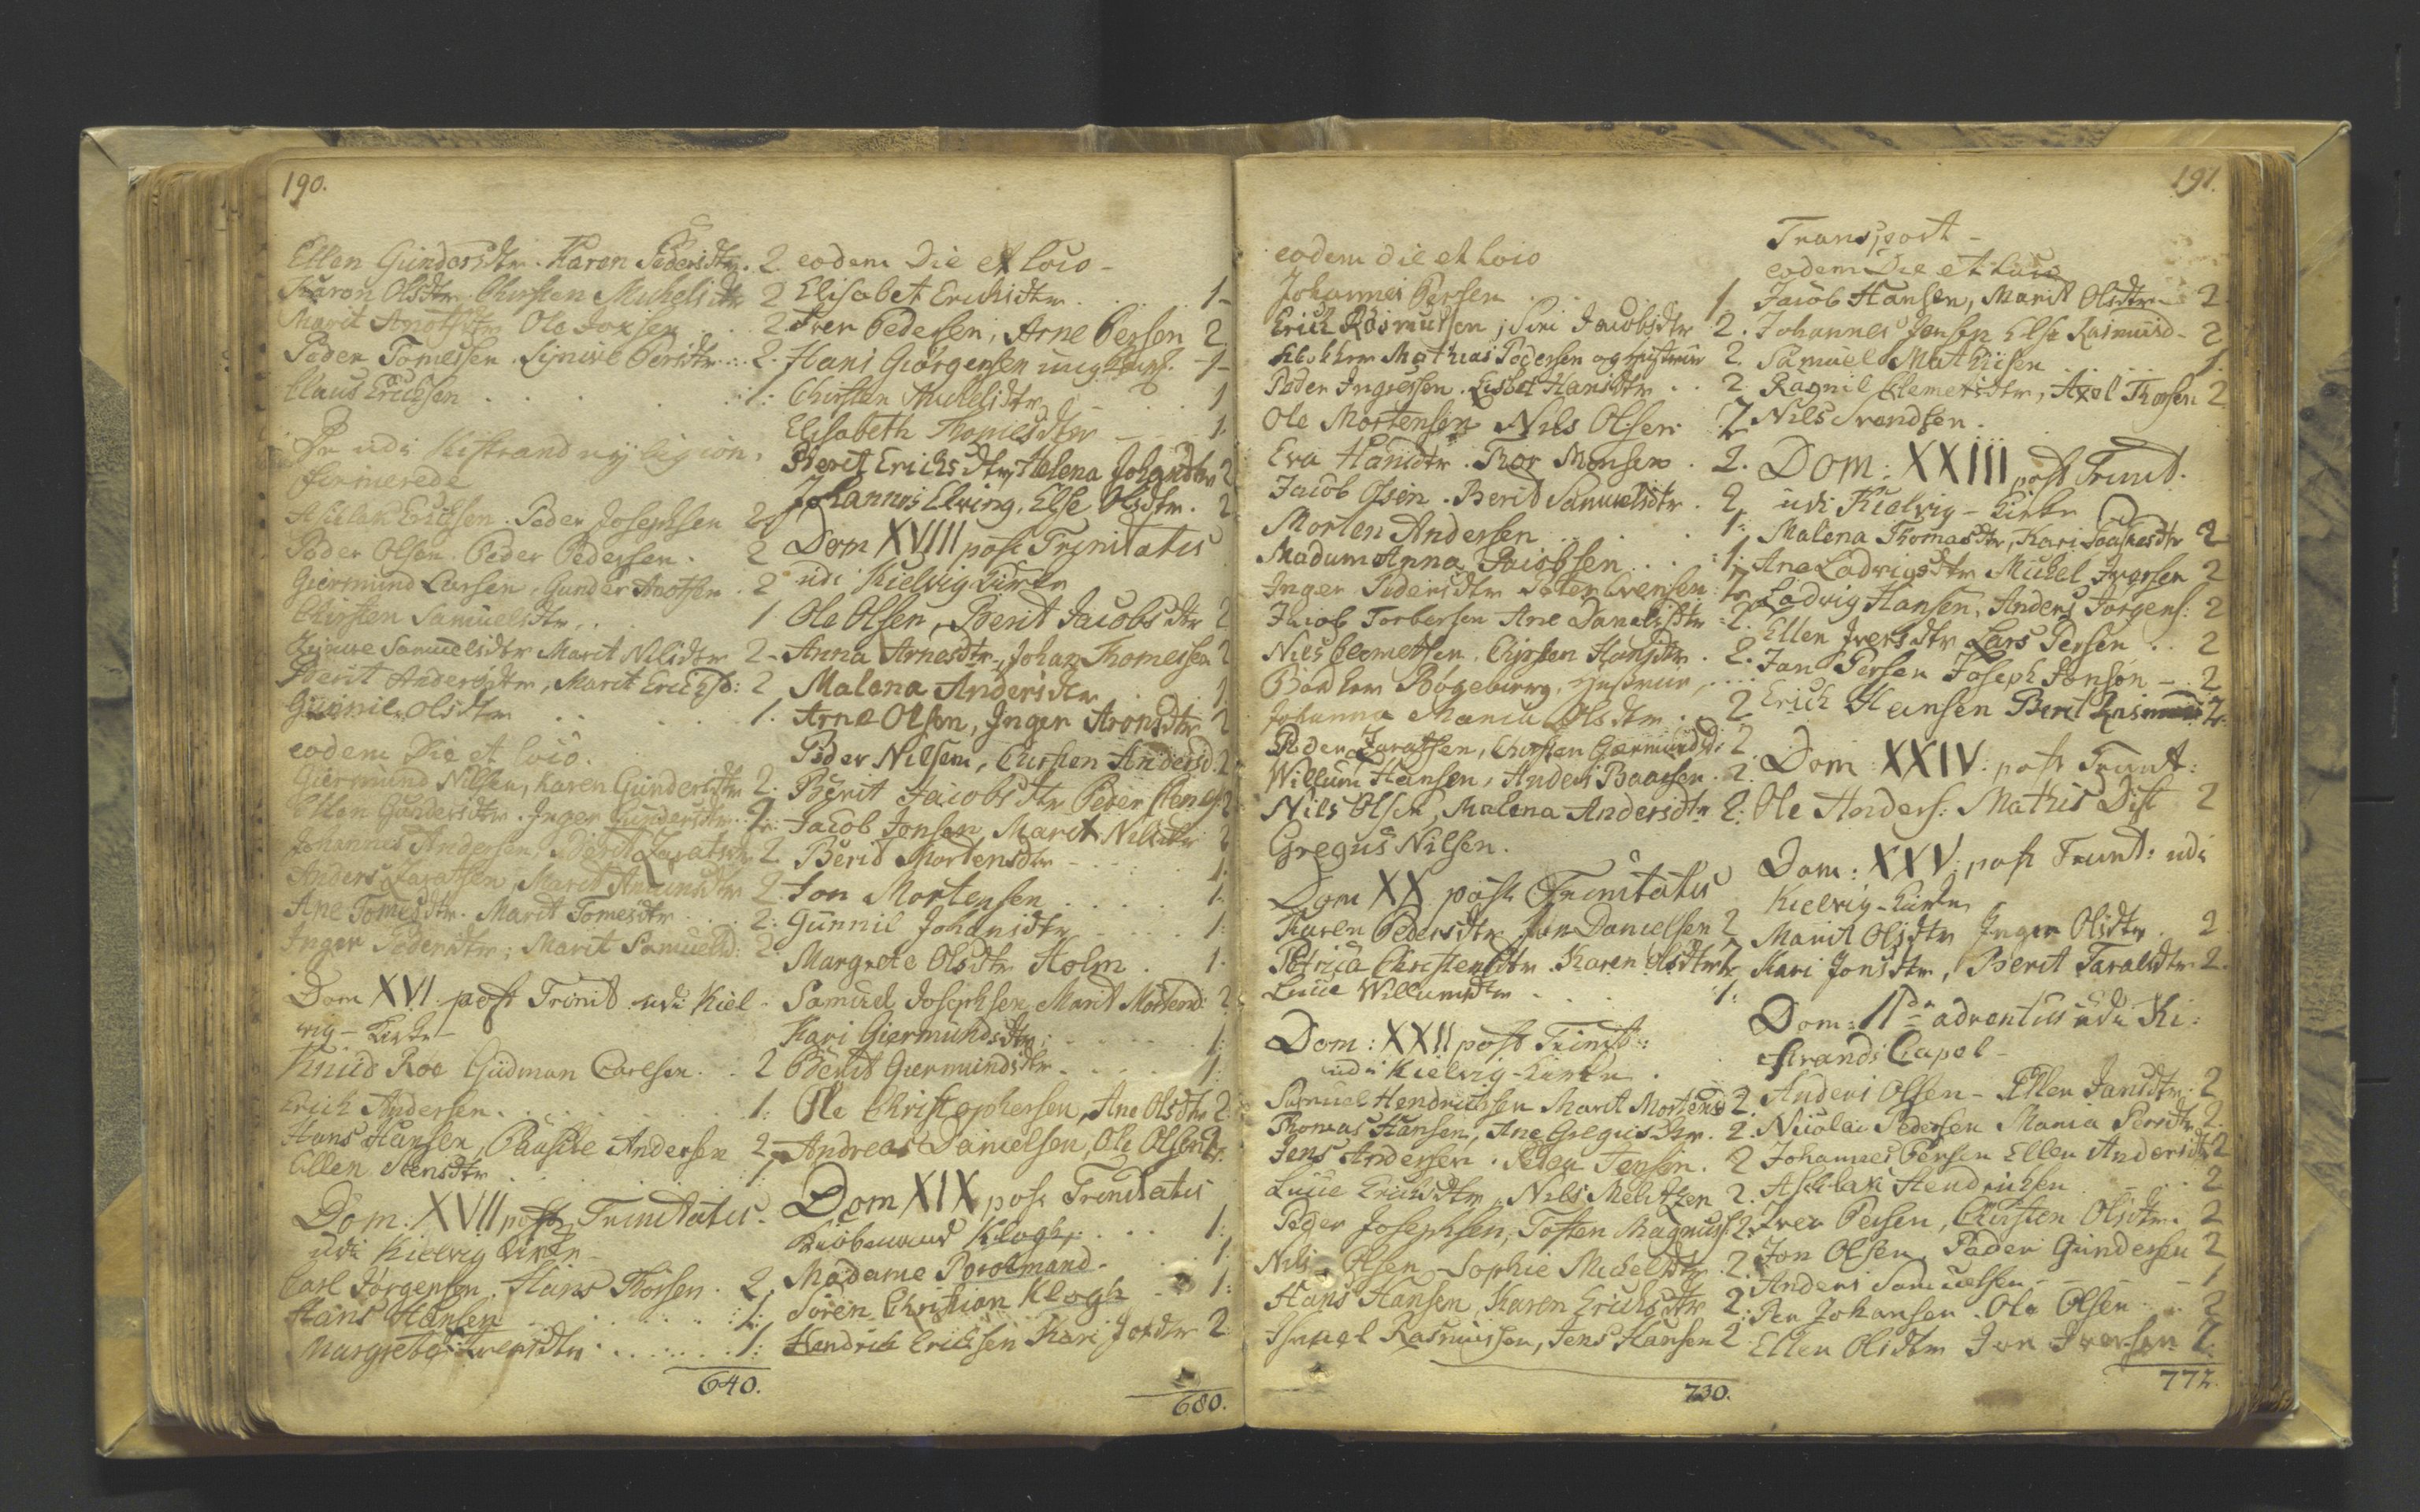 190.
Ellen Gundersdtr. Karen Pedersdtr. 2
Karen Olsdtr. Chirsten Michelsdtr 2
Marit Ole 2
Peder Tomessen. Persdtr. 2.
Claus Erichsen 1:
De udi Kistrand nylig con-
firmerede
Aschlak Erichsen. Peder Josephsen 2
Peder Olsen. Peder Pedersen. 2
Giermund Larsen, Gunder 2
Chirsten Samuelsdtr. 1
Samuelsdtr Marit Nilsdtr 2
Berit Andersdtr, Marit Erichsd: 2
Gunnil Olsdtr 1.
eodem Die et loco.
Giermund Nilsen, Karen Gundersdtr 2.
Ellen Gundersdtr. Inger Gundersdtr. 2
Johannes Andersen, Berit 2
Anders Marit 2
Ane Tomesdtr. Marit Tomesdtr 2:
Inger Pedersdtr; Marit Samuelsd: 2
Dom XVI post Trinit udi Kiel-
vig-Kirke
Knud Roe Gudman Carlsen. 2
Erich Andersen. 1:
Hans Hansen, Andersen 2
Ellen 1
Dom: XVII post Trinitatis.
udi Kielvig Kirke
Carl Jørgensen. Hans Thorsen. 2
Hans Hansen 1:
Margrete Iversdtr 1:
640.
eodem Die et loco-
Elisabet Erichsdtr. 1
Iver Pedersen, Arne Persen 2
Hans Giørgensen ung karl. 1
Chirsten Michelsdtr 1
Elisabeth Thomesdtr 1.
Berit Erichsdtr, Helena Johansdtr 2
Johannes Elving, Else Olsdtr. 2
Dom XVIII post Trinitatis
udi Kielvig Kirke
Ole Olsen, Berit Jacobsdtr 2
Anna Arnesdtr, Johan Thomessen 2
Malena Andersdtr 1
Arne Olsen, Inger Aronsdtr 2
Peder Nilsen, Chirsten Andersd. 2
Berit Jacobsdtr Peder 2
Jacob Jonsen, Marit Nilsdtr 2
Berid Mortensdtr 1.
Jon Mortensen 1.
Gunnil Johansdtr 1:
Margrete Olsdtr Holm. 1.
Samuel Josephsen, Marit Mortensd: 2
Kari Giermundsdtr; 1:
Berit Giermundsdtr. 1:
Ole Christophersen, Ane Olsdtr 2:
Andreas Danielsen, Ole Olsen 2.
Dom XIX post Trinitatis
Kiøbmand Klogh, 1:
Madame Porolmand. 1
Søren Christian Klogh 1:
Hendrich Erichsen Kari 2
680.
191.
eodem die et loco
Johannes Persen 1
Erich Rasmusen, Siri Jacobsdtr 2.
Mathias Pedersen og hustrue 2.
Peder Lisbet Hansdtr 2
Ole Mortensen Nils Olsen 2
Eva Hansdtr. Thor Monsen. 2.
Jacob Olsen. Berit Samuelsdtr. 2
Morten Andersen 1:
Madam Anna Jacobsen 1:
Inger Pedersdtr Peter 2
Jacob Torbersen Ane Danielsdtr 2.
Nils Clemetsen. Chirsten Hansdtr. 2.
Bøgeberg, hustrue,
Johanna Maria Olsdtr. 2
Peder Chirsten Giermundsd: 2
Willum Hansen, Anders Baarsen. 2.
Nils Olsen, Malena Andersdtr 2:
Gregus Nilsen.
Dom XX post Trinitatis
Karen Pedersdtr Jon Danielsen 2
Petrica Christensdtr. Karen Olsdtr 2
Lucie Willumsdtr 1:
Dom: XXII post Trinit:
udi Kielvig-Kirke.
Samuel Hendrichsen Marit Mortensd 2.
Thomas Hansen, Ane Gregusdtr. 2.
Jens Andersen. Peder Jensen. 2
Lucie Erichsdtr, Nils 2.
Peder Josephsen, Tosten Magnuss. 2:
Nils Olsen, Sophie Michelsdtr. 2.
Hans Hansen, Karen Erichsdtr 2:
Ismael Rasmussen, Jens Hansen 2
730.
Transport-
eodem Die et loco
Jacob Hansen, Marit Olsdtr 2
Johannes Jensen Else Rasmusd- 2
Samuel Mathisen 1.
Ragnil Clemetsdtr, Axel Thorsen 2
Nils Svendsen.
Dom: XXIII post Trinit.
udi Kielvig-Kirke
Malena Thomasdtr, Kari 2
Ane Ladvigsdtr Michel Iversen 2
Ladvig Hansen, Anders Jørgens: 2
Ellen Iversdtr Lars Persen 2
Jan Persen Joseph Jonsøn 2
Erich Hansen Berit 2
Dom: XXIV. post Trinit:
Ole Anders: Mathis Dist 2
Dom: XXV. post Trinit: udi
Kielvig-Kirke
Marit Olsdtr Inger Olsdtr. 2
Kari Jonsdtr, Berit Taralsdtr 2.
Dom: IIda adventus udi Ki:
strands Capel-
Anders Olsen- Ellen Jansdtr 2
Nicolai Pedersen Maria Persdtr 2.
Johannes Persen Ellen Andersdtr 2
Aschlak Hendrichsen 2
Iver Persen, Chirsten Olsdtr. 2
Jon Olsen, Peder Gundersen 2
Anders Samuelsen 1
Per Johansen. Ole Olsen 2
Ellen Olsdtr Jon Iversen 2.
772.